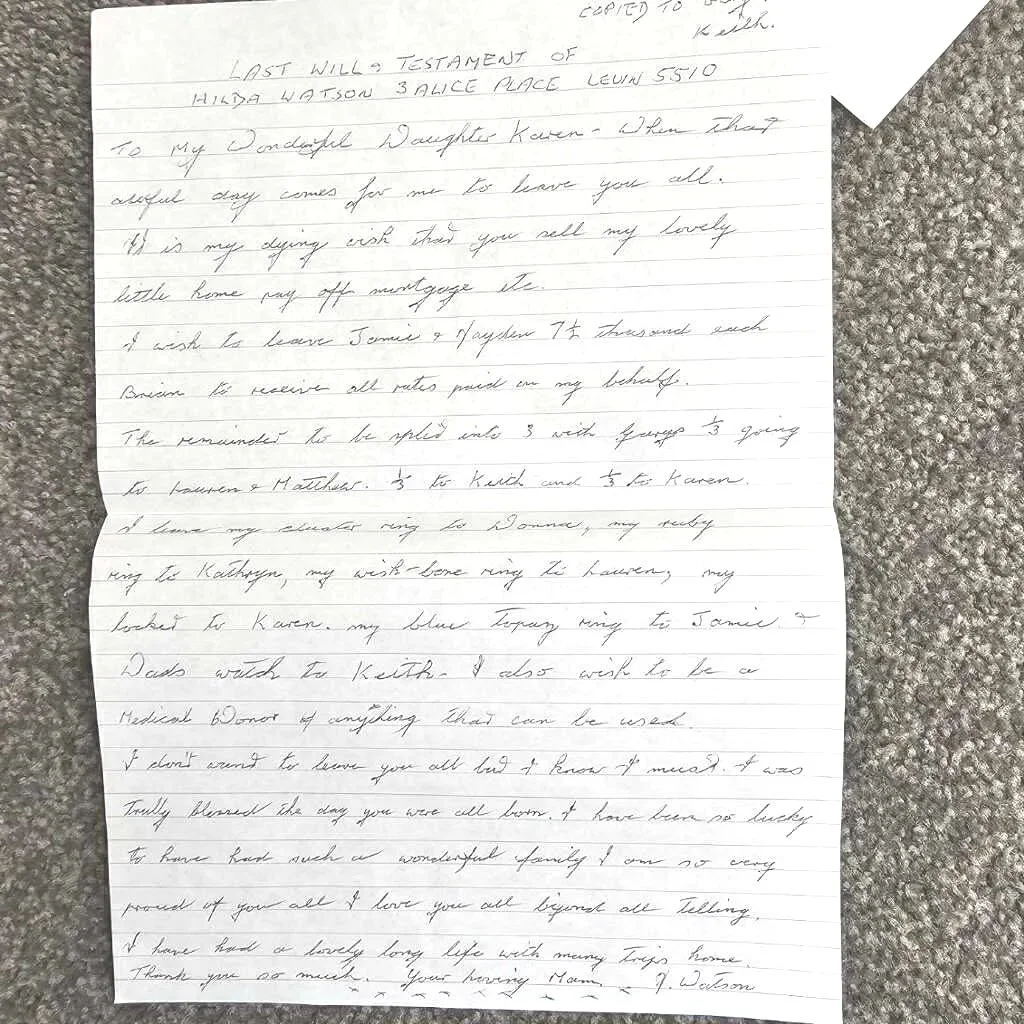 COPIED TO
Keith.
LAST WILL & TESTAMENT OF
HILDA WATSON 3 ALICE PLACE LEVIN 5510
To My Wonderful Daughter Karen - When that
awful day comes for me to leave you all.
It is my dying wish that you sell my lovely
little home pay off mortgage etc.
I wish to leave Jamie & Hayden 7½ thousand each
Brian to receive all rates paid on my behalf.
The remainder to be split into 3 with Garys ⅓ going
to Lauren & Matthew. ⅓ to Keith and ⅓ to Karen.
I leave my cluster ring to Donna, my ruby
ring to Kathryn, my wish-bone ring to Lauren, my
locket to Karen. my blue Topaz ring to Jamie &
Dads watch to Keith - I also wish to be a
Medical Donor of anything that can be used.
I don't want to leave you all but I know I must. I was
Trully blessed the day you were all born. I have been so lucky
to have had such a wonderful family I am so very
proud of you all I love you all beyond all Telling.
I have had a lovely long life with many Trips home.
Thank you so much. Your Loving Mam. H. Watson
x x x x x x x x x